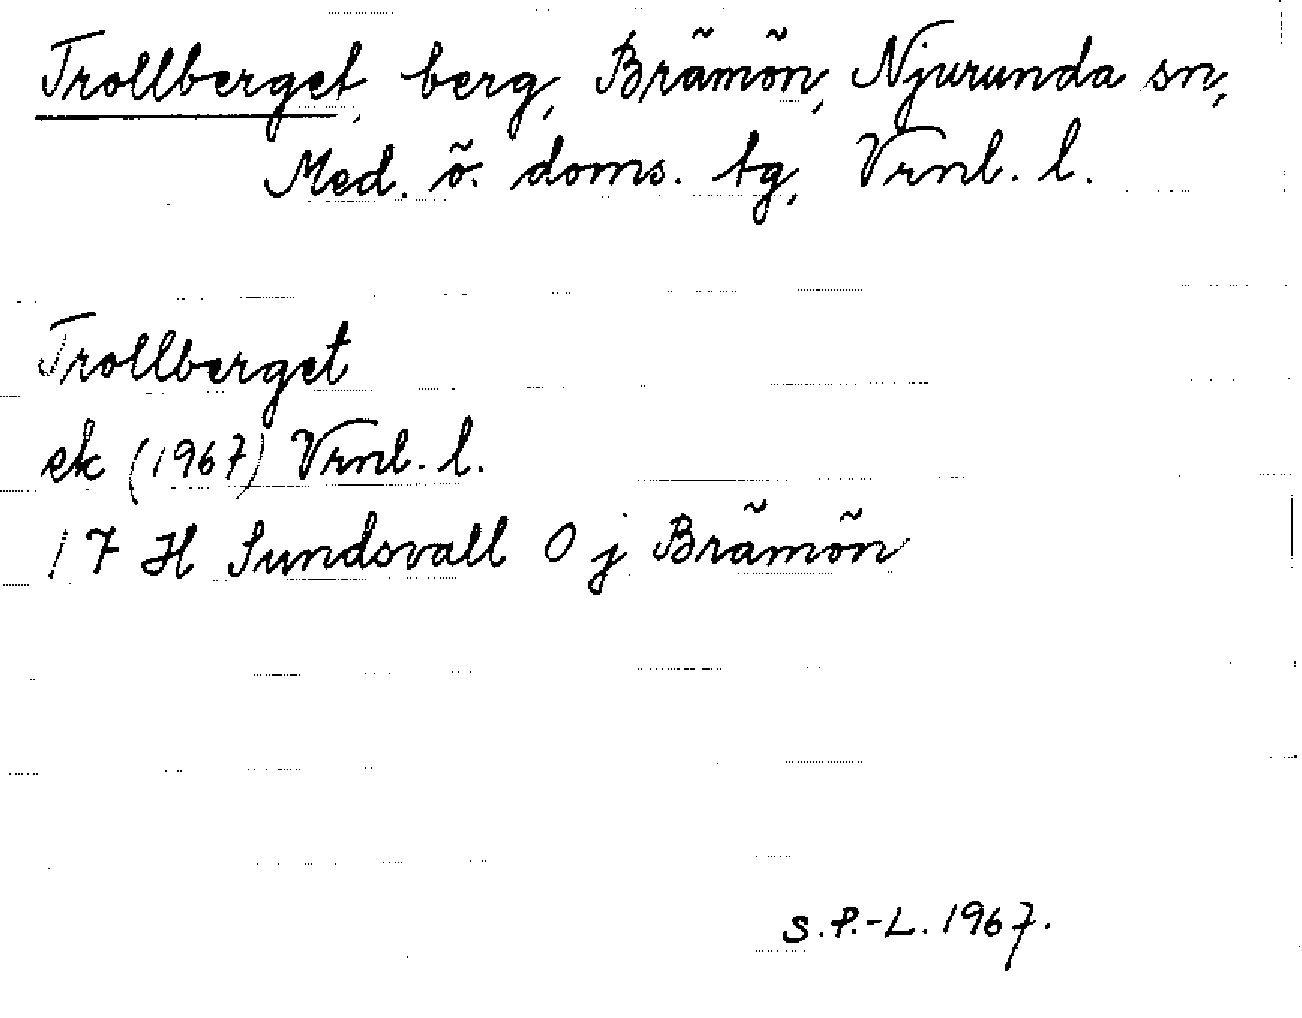 Trollberget, berg, Brämön, Njurunda sn,
Med. ö. doms. tg, Vrnl. l.
Trollberget
ek (1967) Vrnl. l.
17 H Sundsvall O j Brämön
S.P.-L. 1967.